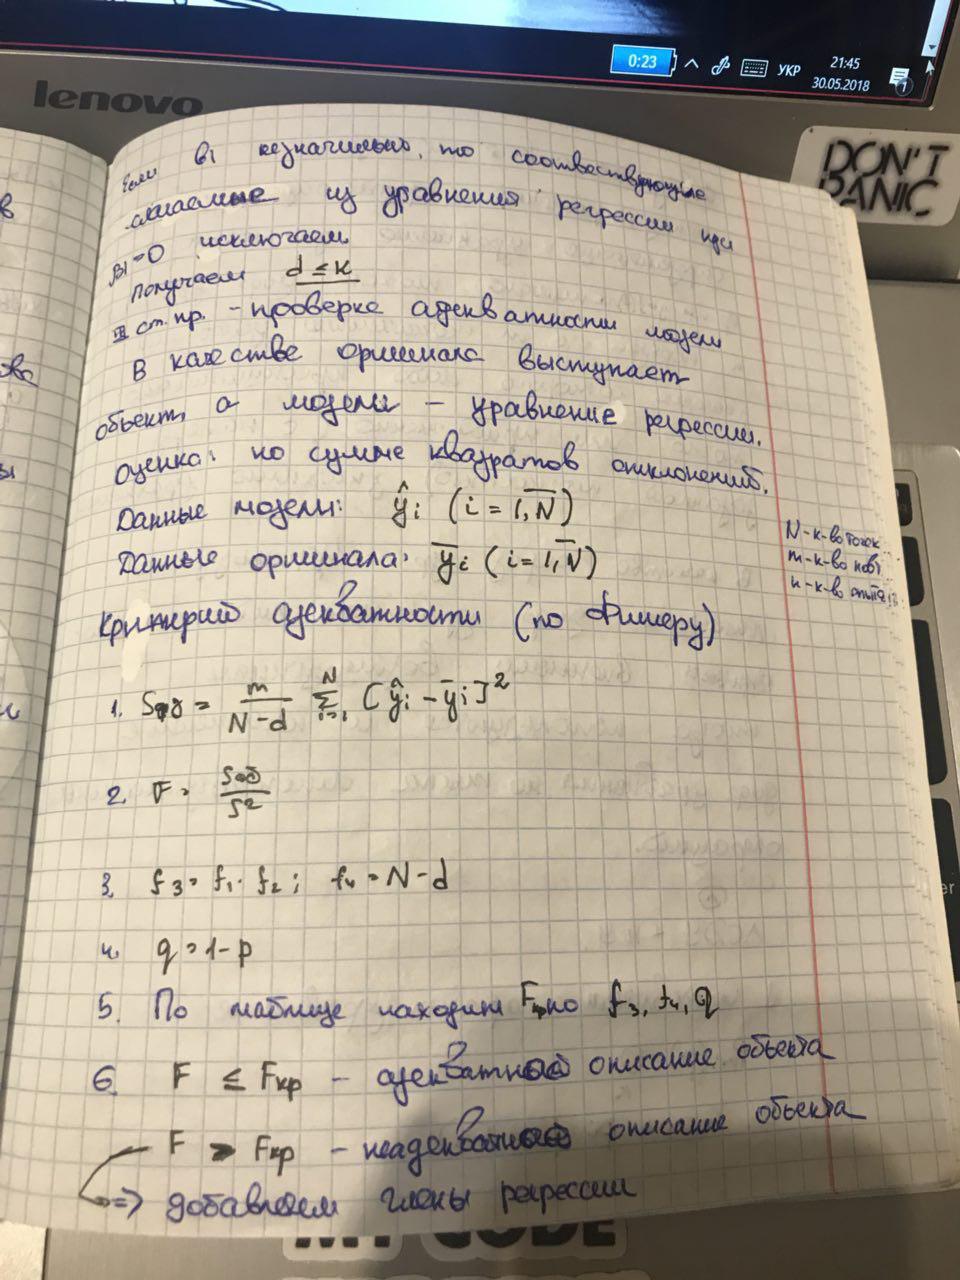 0:23
УКР
21:45
30.05.2018
1
lenovo
DON'T
PANIC
Если bi незначильно, то соотвествующие
слагаемые из уравнения регрессии при
βi=0 исключаем
получаем d ≤ к
III ст. пр. - проверка адекватности модели
В качестве оригинала выступает
обьект, а модели - уравнение регрессии.
Оценка: по сумме квадратов отклонений.
Данные модели: ŷi (i = 1,N)
Данные оригинала: y̅i (i = 1,N)
N - к-во точек
m - к-во
к-во
Критерий адекватности (по Фишеру)
1. Sад = m/(N-d) Σ [ŷi - y̅i]²
2. F = Sад/S²
3. f3 = f1 · f2; f4 = N-d
4. q = 1-p
5. По таблице находим Fкр по f3, f4, q
6. F ≤ Fкр - адекватное описание обьекта
F > Fкр - неадекватное описание обьекта
=> добавляем члены регрессии
MY CODE